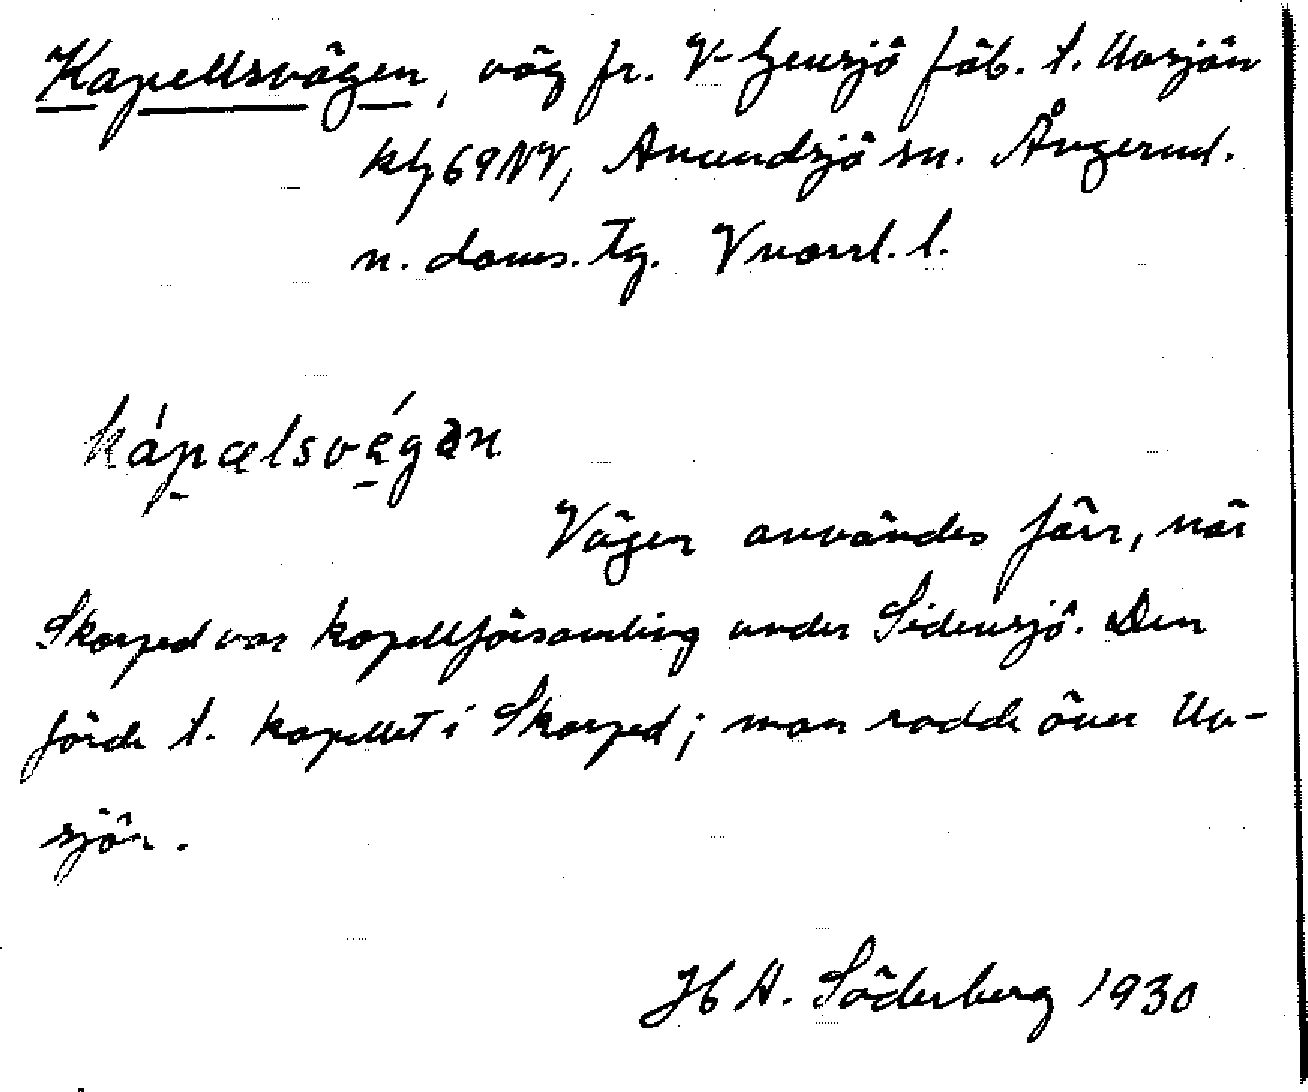 Kapellsvägen, väg fr. V-Gensjö fäb. t. Uvsjön
kbl 69NV, Anundsjö sn. Ångerml.
n. doms. tg. Vnorrl. l.
kápælsvę́gən
Vägen användes förr, när
Skorped var kapellförsamling under Sidensjö. Den
förde t. kapellet i Skorped; man rodde över Uv-
sjön.
H A. Söderberg 1930